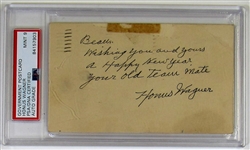 GOVERNMENT POSTCARD
HONUS WAGNER
PSA/DNA CERTIFIED
AUTO GRADE
MINT 9
84151903
PSA
Beau
Wishing you and yours
a Happy New Year
your old team mate
Honus Wagner